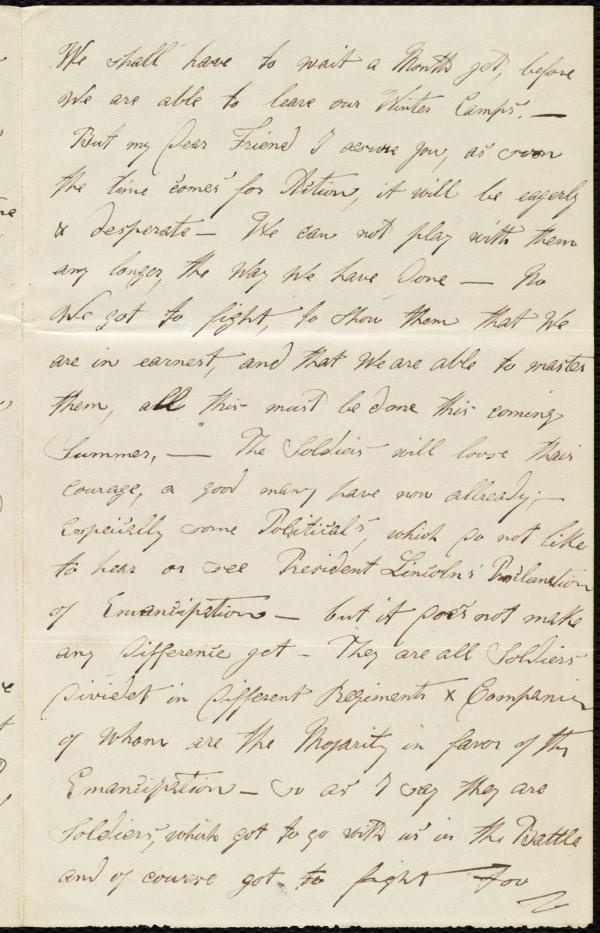 We shall have to wait a Month yet, before
We are able to leave our Winter Camps. —
But my Dear Friend I assure you, as soon
the time comes for Action, it will be eagerly
& desperate — We can not play with them
any longer, the Way We have Done — No
We got to fight, to show them that We
are in earnest, and that We are able to master
them, all this must be done this coming
Summer, — The Soldiers will loose thair
courage, a good many have now allready; —
especially some Politicals, which do not like
to hear or see President Lincoln's Proclamation
of Emancipation — but it does not make
any Difference yet — They are all Soldiers
Dividet in Different Regiments & Companies
of Whom are the Mojarity in favor of the
Emancipation — so as I say they are
Soldiers, which got to go with us in the Battle
and of course got to fight for